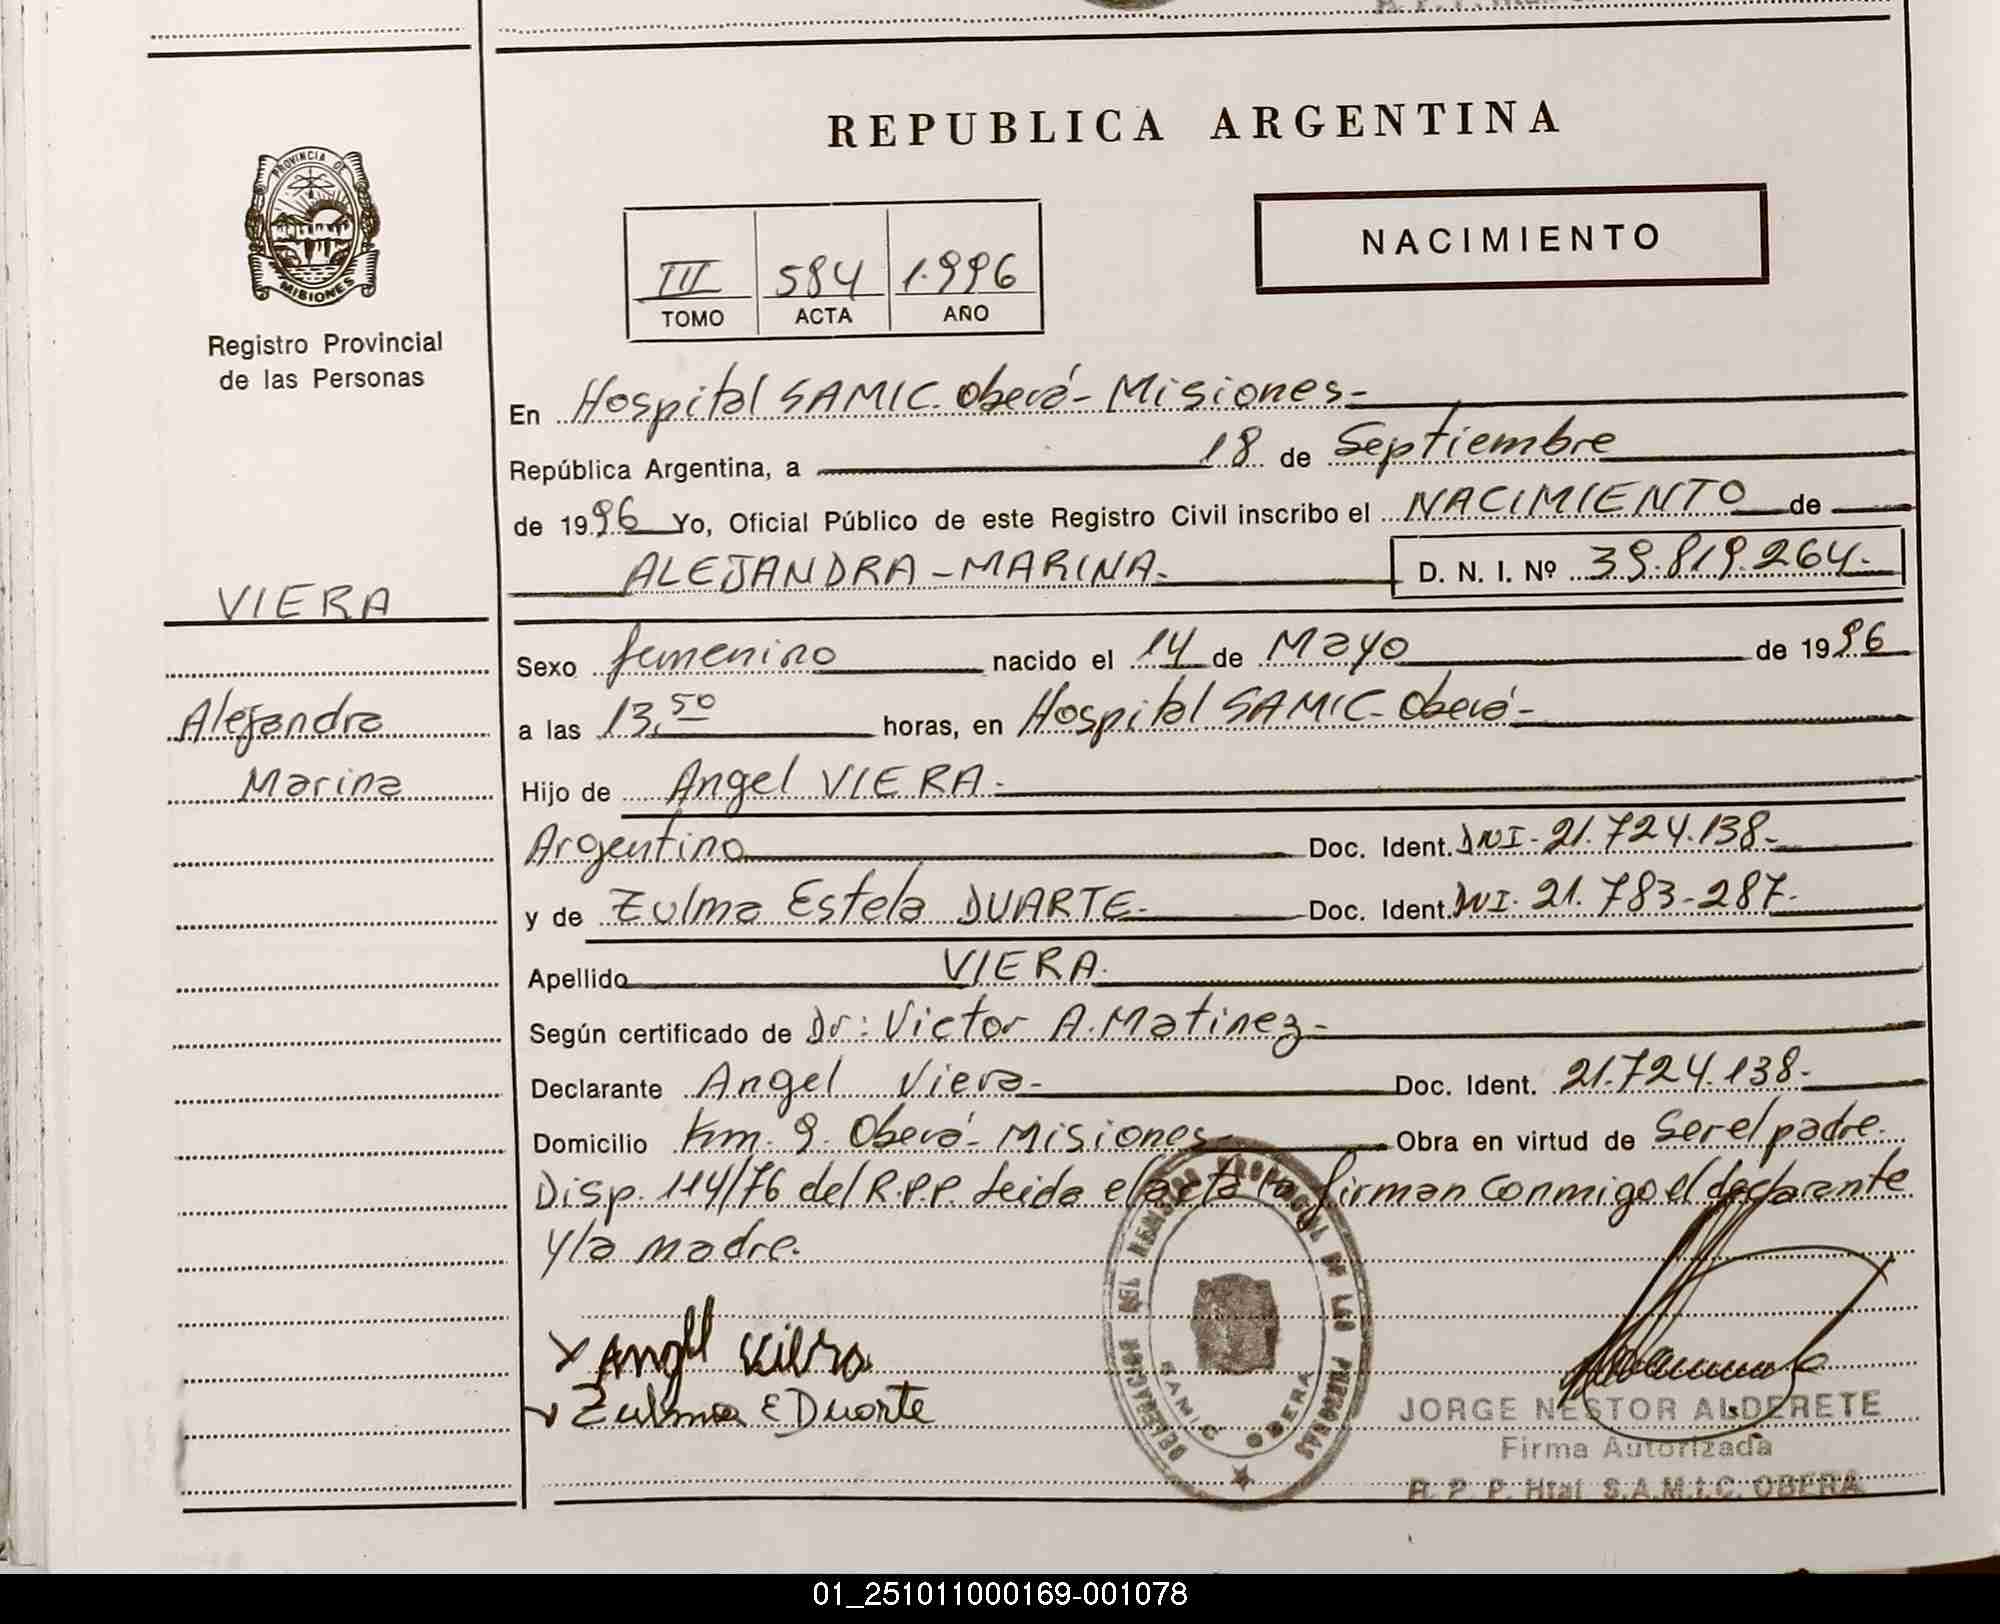 REPUBLICA ARGENTINA
PROVINCIA DE
MISIONES
Registro Provincial
de las Personas
III 584 1.996
TOMO ACTA AÑO
NACIMIENTO
En Hospital SAMIC. Oberá - Misiones -
República Argentina, a 18 de Septiembre
de 1996 Yo, Oficial Público de este Registro Civil inscribo el NACIMIENTO de
ALEJANDRA - MARINA. D. N. I. Nº 39.819.264.
VIERA
Alejandra
Marina
Sexo femenino nacido el 14 de Mayo de 1996
a las 13,50 horas, en Hospital SAMIC - Oberá -
Hijo de Angel VIERA.
Argentino Doc. Ident. DNI - 21.724.138 -
y de Zulma Estela DUARTE. Doc. Ident. DNI. 21.783-287.
Apellido VIERA.
Según certificado de Dr: Victor A. Matinez -
Declarante Angel Viera - Doc. Ident. 21.724.138 -
Domicilio Km. 9. Oberá - Misiones Obra en virtud de Ser el padre.
Disp. 114/76 del R.P.P. Leida el acta la firman conmigo el declarante
y la madre.
DELEGACION DEL REGISTRO PROVINCIAL DE LAS PERSONAS
SAMIC OBERA
x Angel Viera
Zulma E Duarte
JORGE NESTOR ALDERETE
Firma Autorizada
R. P. P. Htal. S.A.M.I.C. OBERA
01_251011000169-001078